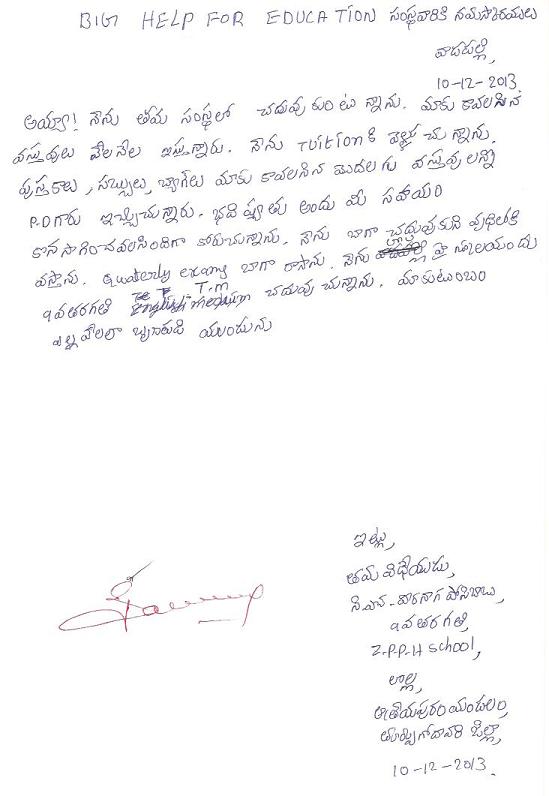 BIG HELP FOR EDUCATION సంస్థవారికి నమస్కారములు
వాడపల్లి,
10-12-2013.
అయ్యా! నేను తమ సంస్థలో చదువుకుంటున్నాను. మాకు కావలసిన
వస్తువులు నేలనేల ఇస్తున్నారు. నేను Tuition కి వెళ్లుచున్నాను.
పుస్తకాలు, సబ్బులు, బ్యాగ్‌లు మాకు కావలసిన మొదలగు వస్తువులన్ని
P.D గారు ఇచ్చిచున్నారు. భవిష్యతు అందు మీ సహయం
కొనసాగించవలసిందిగా కోరుచున్నాను. నేను బాగా చదువుకుని వృధిలోకి
వస్తాను. Quaterly exams బాగా రాసాను. నేను హైస్కూలయందు
9వతరగతి T.m చదువుచున్నాను. మాకుటుంబం
ఎల్లవేలలా బుుణపడి యుండును
ఇట్లు,
తమ విధేయుడు,
సి.హెచ్-వీరనాగ పోసిబాబు,
9వతరగతి,
Z.P.P.H School,
లొల్ల,
ఆత్రేయపురం మండలం,
తూర్పుగోదావరి జిల్లా,
10-12-2013.